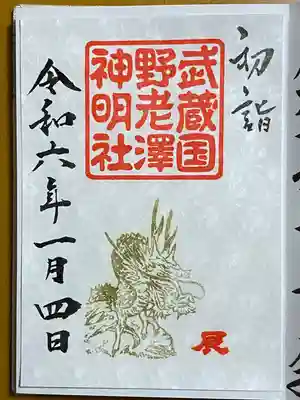 初詣
武蔵国
野老澤
神明社
辰
令和六年一月四日